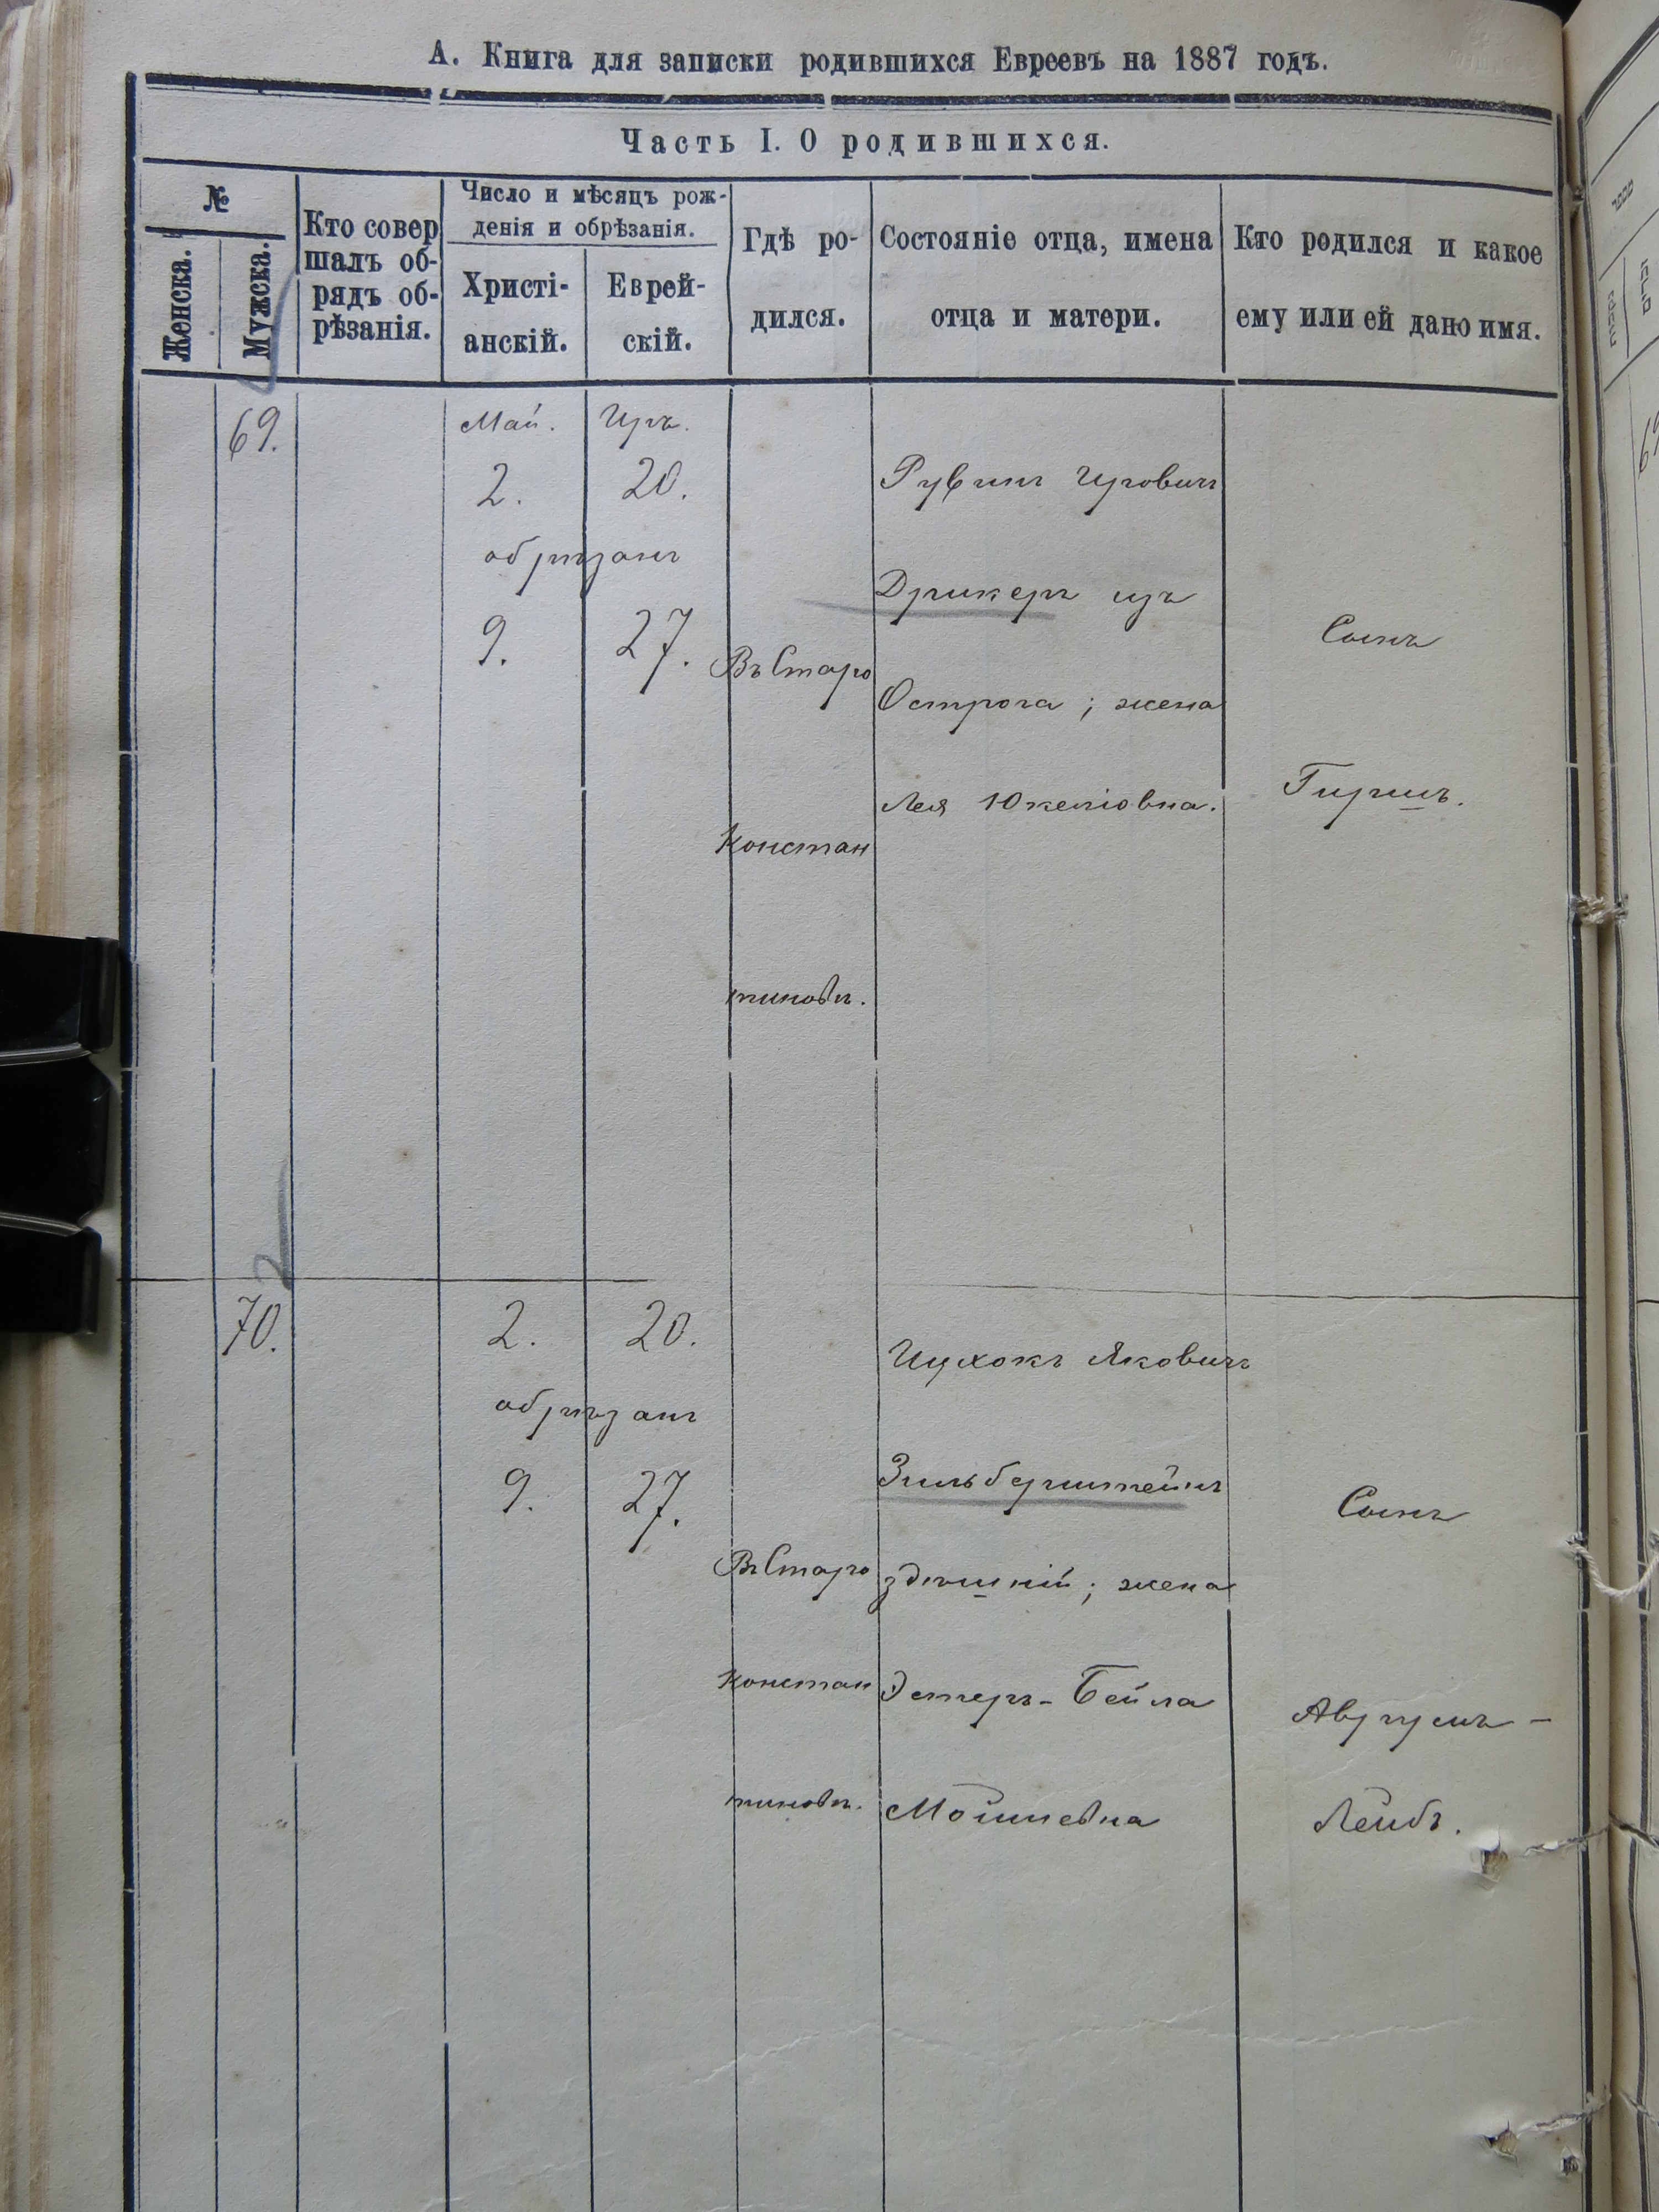 А. Книга для записки родившихся Евреевъ на 1887 годъ.
Часть I. О родившихся.
№
Женска.
Мужска.
Кто совер
шалъ об-
рядъ об-
рѣзанія.
Число и мѣсяцъ рож-
денія и обрѣзанія.
Христі-
анскій.
Еврей-
скій.
Гдѣ ро-
дился.
Состояніе отца, имена
отца и матери.
Кто родился и какое
ему или ей дано имя.
69.
Май. Иръ.
2. 20.
обрѣзанъ
9. 27.
Въ Старо
Констан
тиновѣ.
Рувинъ
Дрикеръ изъ
Острога; жена
Лея
Сынъ
Гиршъ.
70.
2. 20.
обрѣзанъ
9. 27.
Въ Старо
констан
тиновѣ.
Ицхокъ Яковичъ
Зильберштейнъ
здѣшній; жена
Эстеръ-Бейла
Мошковна
Сынъ
Аврумъ-
Лейбъ.